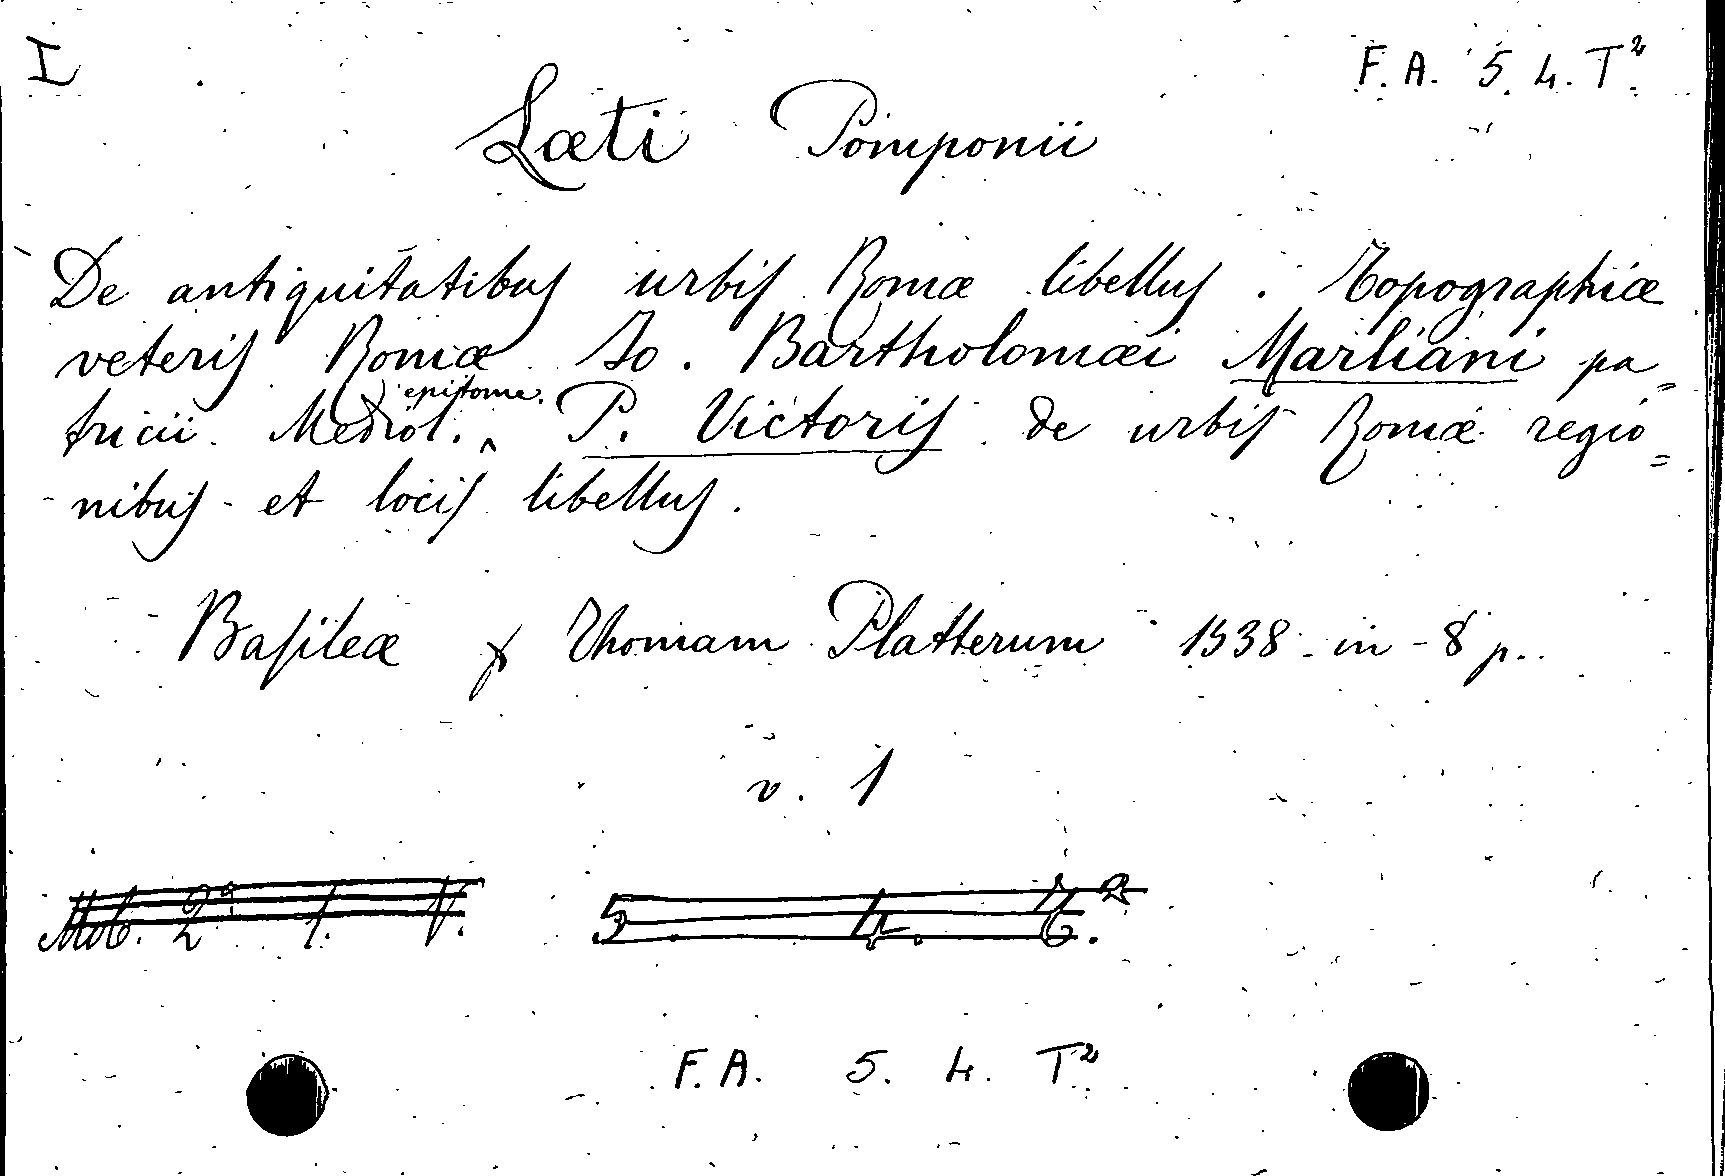 I
F. A. 5. 4. T²
Læti Pomponii
De antiquitatibus urbis Romæ libellus. Topographiæ
veteris Romæ Jo. Bartholomæi Marliani pa=
tricii Mediol. epitome. P. Victoris de urbis Romæ regio=
nibus et locis libellus.
Basileæ Thomam Platterum 1538 in-8 p.
v. 1
Mob. 2ª 1. V. 5. 4.
F. A. 5. 4. T²